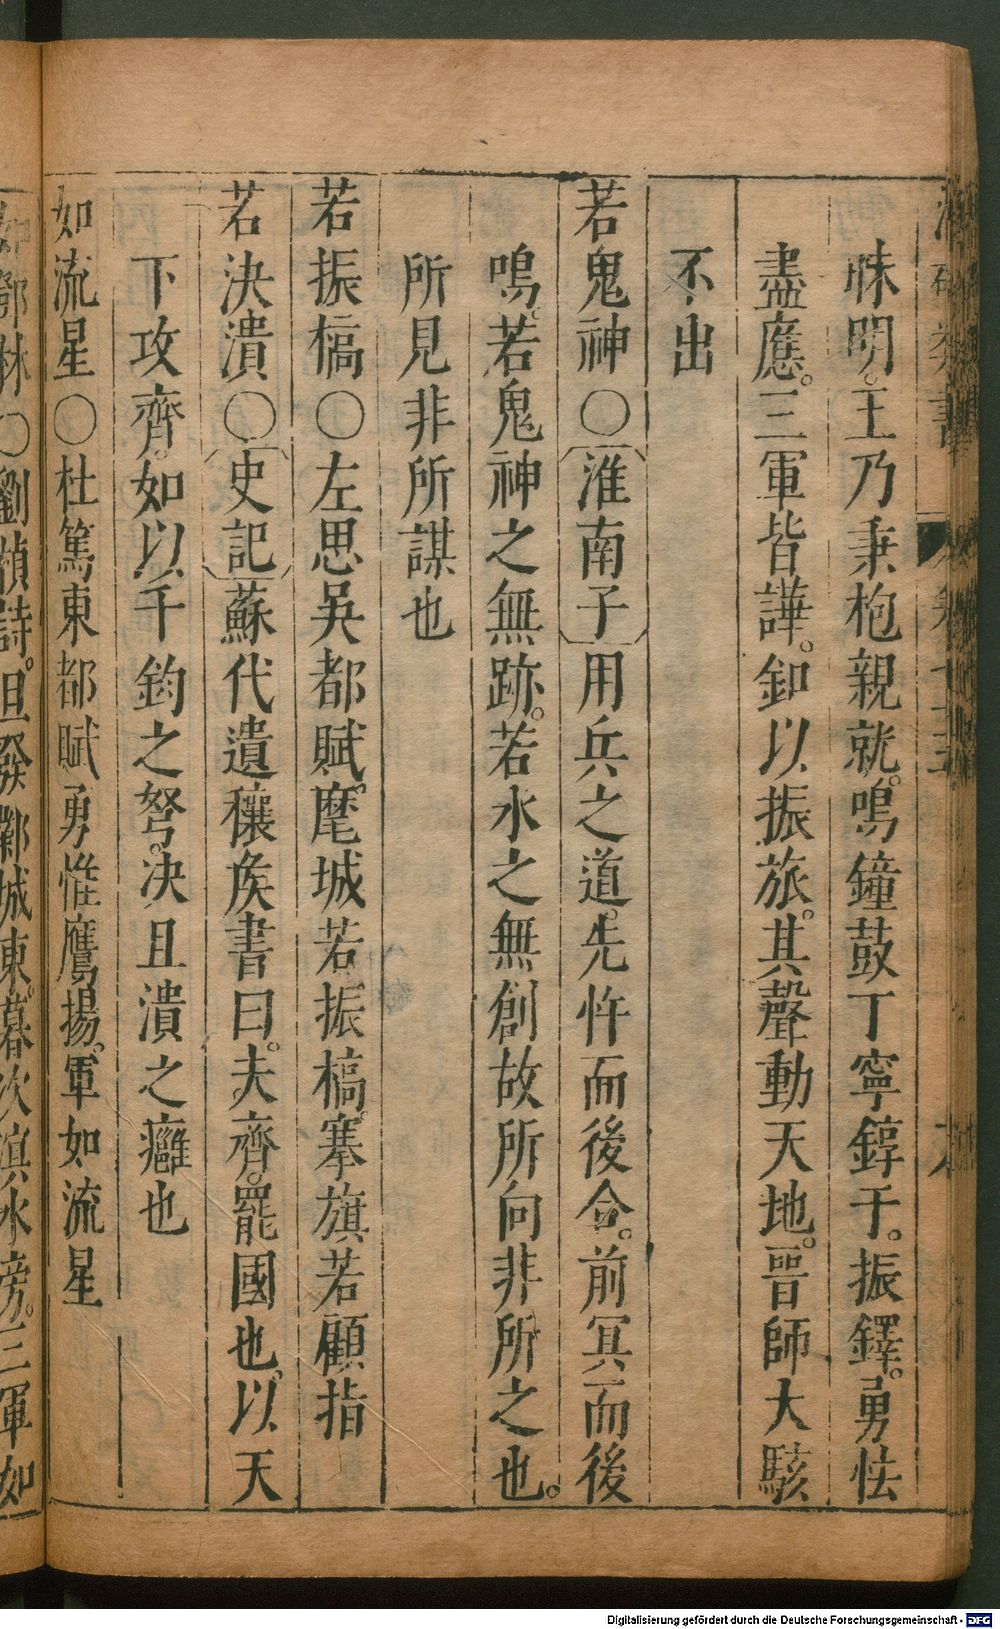 昧明。王乃秉枹親就。鳴鐘鼓丁寧錞于。振鐸。勇怯
盡應。三軍皆譁。釦以振旅。其聲動天地。晉師大駭
不出
若鬼神○淮南子用兵之道。先忤而後合。前冥而後
鳴。若鬼神之無跡。若水之無創故所向非所之也。
所見非所謀也
若振槁○左思吳都賦。麾城若振槁。搴旗若顧指
若決潰○史記蘇代遺穰侯書曰。夫齊。罷國也。以天
下攻齊。如以千鈞之弩。決且潰之癰也
如流星○杜篤東都賦勇惟鷹揚。軍如流星
如鄧林○劉楨詩。旦發鄴城東。暮次溟水旁。三軍如
Digitalisierung gefördert durch die Deutsche Forschungsgemeinschaft - DFG